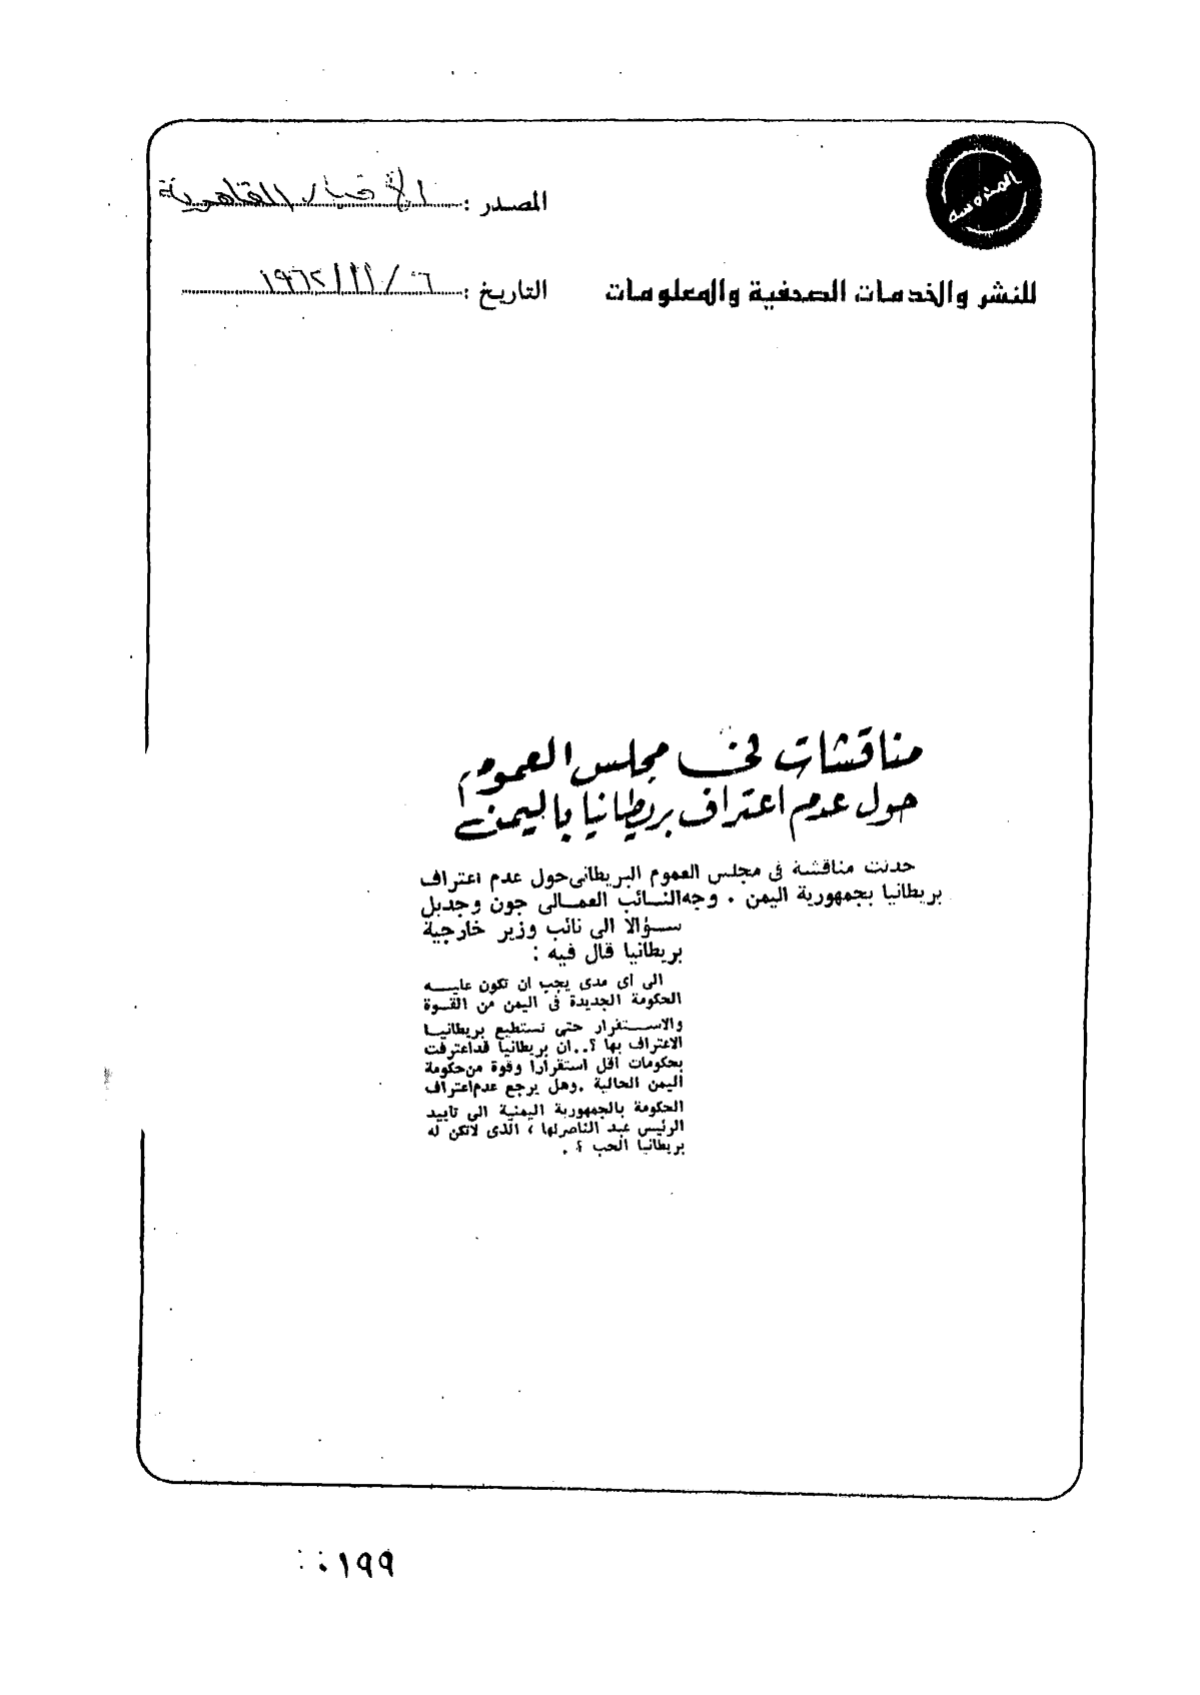 المحروسة
المصدر : الأخبار القاهرية
للنشر والخدمات الصحفية والمعلومات
التاريخ : ٦ / ١١ / ١٩٦٢
مناقشات فى مجلس العموم
حول عدم اعتراف بريطانيا باليمن
حدثت مناقشة فى مجلس العموم البريطانى حول عدم اعتراف
بريطانيا بجمهورية اليمن . وجه النائب العمالى جون وجدبل
سؤالا الى نائب وزير خارجية
بريطانيا قال فيه :
الى اى مدى يجب ان تكون عليه
الحكومة الجديدة فى اليمن من القوة
والاستقرار حتى تستطيع بريطانيا
الاعتراف بها ؟.. ان بريطانيا قد اعترفت
بحكومات اقل استقرارا وقوة من حكومة
اليمن الحالية . وهل يرجع عدم اعتراف
الحكومة بالجمهورية اليمنية الى تأييد
الرئيس عبد الناصر لها ، الذى لاتكن له
بريطانيا الحب ؟ .
١٩٩